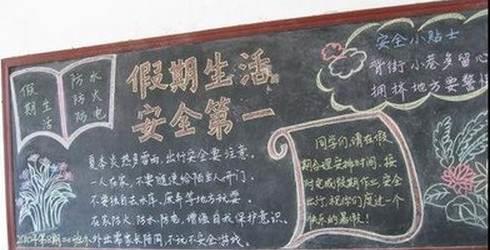 假期生活
防水
防火
防电
假期生活
安全第一
夏季炎热多雷雨,出行安全要注意。
一人在家,不要随便给陌生人开门,
不要独自去水库、
在家防火、防水、防电,增强自我保护意识。
外出需家长陪同,不玩不安全游戏。
同学们,请在假
期合理安排时间,按
时完成假期作业,安全
出行,祝你们度过一个
快乐的暑假!
安全小贴士
背街小巷多留心
拥挤地方要警惕